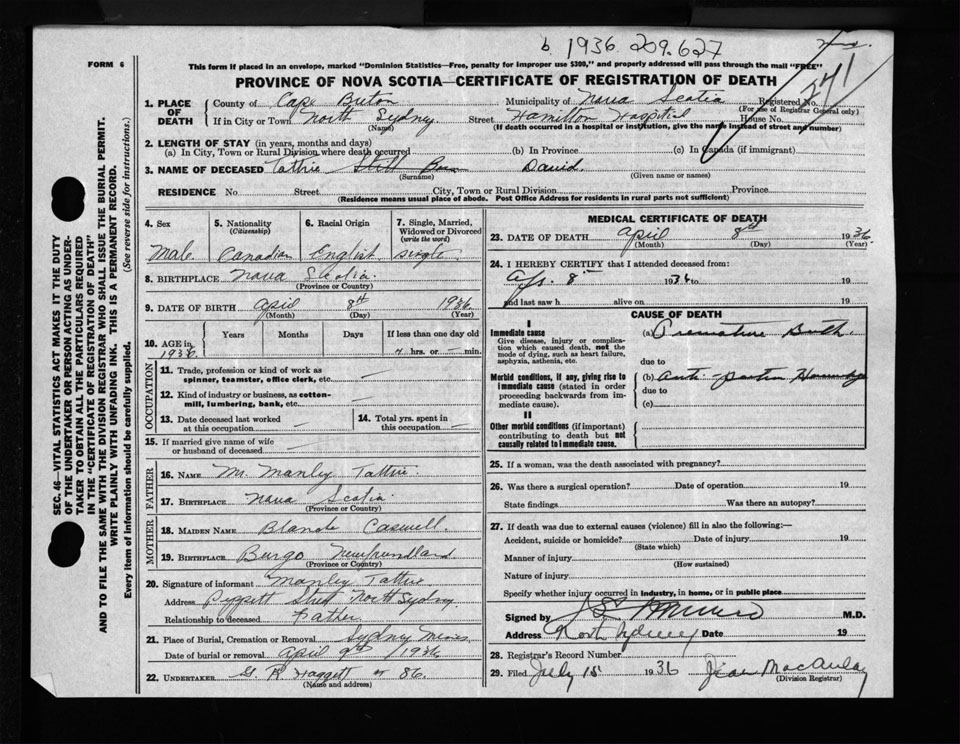 b. 1936. 209.627
FORM 6
This form if placed in an envelope, marked "Dominion Statistics—Free, penalty for improper use $300," and properly addressed will pass through the mail "FREE"
PROVINCE OF NOVA SCOTIA—CERTIFICATE OF REGISTRATION OF DEATH
1. PLACE OF DEATH
County of Cape Breton Municipality of Nova Scotia Registered No.
(For use of Registrar General only)
If in City or Town North Sydney. Street Hamilton Hospital House No.
(Name) (If death occurred in a hospital or institution, give the name instead of street and number)
2. LENGTH OF STAY (in years, months and days)
(a) In City, Town or Rural Division where death occurred (b) In Province (c) In Canada (if immigrant)
3. NAME OF DECEASED Tattrie Still Born David.
(Surname) (Given name or names)
RESIDENCE No. Street City, Town or Rural Division Province
(Residence means usual place of abode. Post Office Address for residents in rural parts not sufficient)
4. Sex
5. Nationality (Citizenship)
6. Racial Origin
7. Single, Married, Widowed or Divorced (write the word)
Male Canadian English single.
8. BIRTHPLACE Nova Scotia.
(Province or Country)
9. DATE OF BIRTH April 8th 1936.
(Month) (Day) (Year)
10. AGE in 1936.
Years Months Days If less than one day old
4 hrs. or — min.
OCCUPATION
11. Trade, profession or kind of work as spinner, teamster, office clerk, etc. —
12. Kind of industry or business, as cotton-mill, lumbering, bank, etc. —
13. Date deceased last worked at this occupation —
14. Total yrs. spent in this occupation —
15. If married give name of wife or husband of deceased —
FATHER
16. NAME M. Manley Tattrie.
17. BIRTHPLACE Nova Scotia.
(Province or Country)
MOTHER
18. MAIDEN NAME Blanche Caswell.
19. BIRTHPLACE Burgo Newfoundland
(Province or Country)
20. Signature of informant Manley Tattrie
Address Pippett Street North Sydney.
Relationship to deceased Father
21. Place of Burial, Cremation or Removal Sydney Mines
Date of burial or removal April 9th 1936
22. UNDERTAKER G. R. Haggett 86.
(Name and address)
MEDICAL CERTIFICATE OF DEATH
23. DATE OF DEATH April 8th 1936
(Month) (Day) (Year)
24. I HEREBY CERTIFY that I attended deceased from:
Ap. 8 1936 to 19
and last saw h alive on 19
CAUSE OF DEATH
I
Immediate cause
Give disease, injury or complication which caused death, not the mode of dying, such as heart failure, asphyxia, asthenia, etc.
(a) Premature Birth.
due to
Morbid conditions, if any, giving rise to immediate cause (stated in order proceeding backwards from immediate cause).
(b) Anti-partum
due to
(c)
II
Other morbid conditions (if important) contributing to death but not causally related to immediate cause.
25. If a woman, was the death associated with pregnancy?
26. Was there a surgical operation? Date of operation 19
State findings Was there an autopsy?
27. If death was due to external causes (violence) fill in also the following:—
Accident, suicide or homicide? Date of injury 19
(State which)
Manner of injury
(How sustained)
Nature of injury
Specify whether injury occurred in industry, in home, or in public place
Signed by M.D.
Address North Sydney Date 19
28. Registrar's Record Number
29. Filed July 15 1936 Jean MacAulay
(Division Registrar)
SEC. 46—VITAL STATISTICS ACT MAKES IT THE DUTY
OF THE UNDERTAKER OR PERSON ACTING AS UNDER-
TAKER TO OBTAIN ALL THE PARTICULARS REQUIRED
IN THE "CERTIFICATE OF REGISTRATION OF DEATH"
AND TO FILE THE SAME WITH THE DIVISION REGISTRAR WHO SHALL ISSUE THE BURIAL PERMIT.
WRITE PLAINLY WITH UNFADING INK. THIS IS A PERMANENT RECORD.
Every item of information should be carefully supplied. (See reverse side for instructions.)